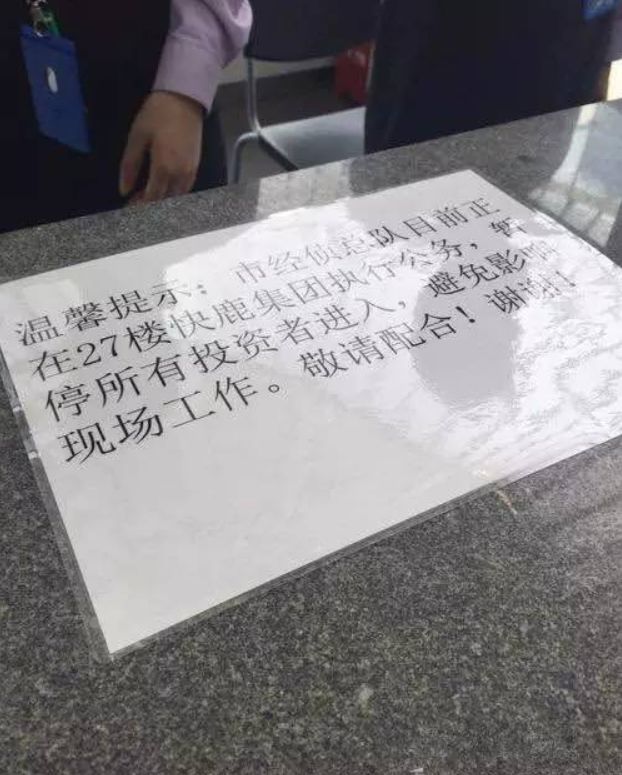 温馨提示：市经侦总队目前正
在27楼快鹿集团执行公务，暂
停所有投资者进入，避免影响
现场工作。敬请配合！谢谢！